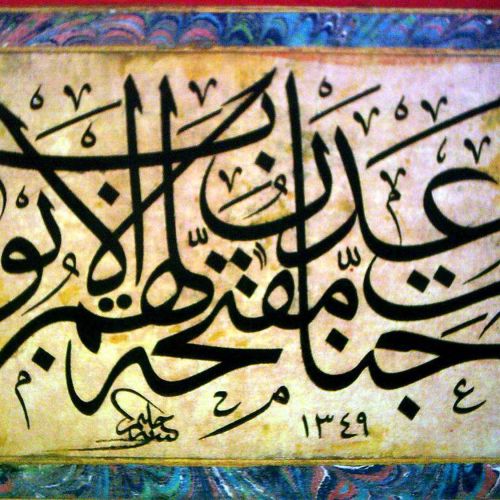 جنّات عدنٍ مفتّحةً لهم الابواب
حليم
١٣٤٩